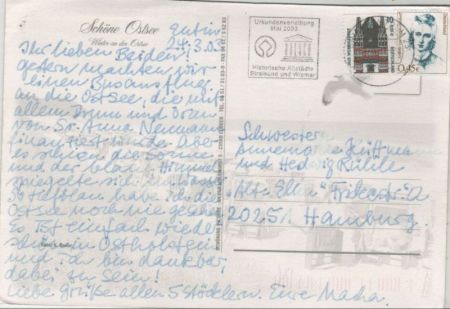 Schöne Ostsee
Winter an der Ostsee
Eutin
24.3.03
Ihr lieben Beiden!
gestern machten wir
einen Busausflug
an die Ostsee, die mit
allem Drum und Dran
von Sr. Anna Neumann
finanziert wurde. Aber
es schien die Sonne
und der blaue Himmel
spiegelte sich
habe ich die
Ostsee noch nie gesehen
Es ist einfach wieder
schön in Ostholstein
und ich bin dankbar,
dabei zu sein!
Liebe Grüße allen 5 Stöcklern. Eure
Urkundenverleihung
Mai 2003
Historische Altstädte
Stralsund und Wismar
0,45€
Schwestern
Annemarie
und Hedwig Rühle
"Alte Eiche"
20251 Hamburg.